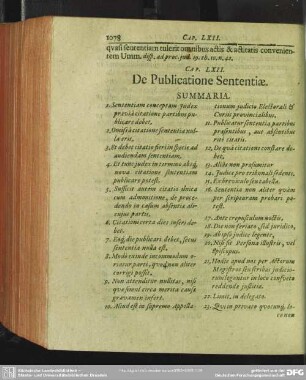 1078 CAP. LXII.
quasi sententiam tulerit omnibus actis & actitatis convenien-
tem Umm. disp. ad proc. jud. 19. th. 10. n. 42.
CAP. LXII.
De Publicatione Sententiæ.
SUMMARIA.
1. Sententiam conceptam Judex
præviâ citatione partibus pu-
blicare debet,
2. Omissâ citatione sententia nul-
la erit,
3. Et debet citatio fieri in specie ad
audiendam sententiam.
4. Et tunc judex in termino absq;
nova citatione sententiam
publicare potest.
5. Sufficit autem citatio unica
cum admonitione, de proce-
dendo in casum absentiæ ali-
cujus partis.
6. Citatione certa dies inseri de-
bet.
7. Enq; die publicari debet, secus
sententia nulla est.
8. Modò vitiade incommodum o-
riatur parti,
corrigi possit.
9. Non attenditur nullitas, nisi
quæ simul circa merita causæ
gravamen infert.
10. Nihil est in supremo Appella-
tionum judicio Electorali &
Curiis provincialibus.
11. Publicatur sententia partibus
præsentibus, aut absentibus
ritè citatis.
12. De quâ citatione constare de-
bet,
13. Aliàs non præsumitur
14. Judex pro tribunali sedens,
15. Ex brevicula seu schedula.
16. Sententia non aliter quàm
per scripturam probari po-
test.
17. Ante crepusculum noctis,
18. Die non feriato, scil. juridico,
19. Ab ipso judice legente,
20. Nisi sit Persona illustris, vel
Episcopus.
21. Hodie apud nos per Actorum
Magistros illustribus judiciis
nunc legitur in loco consueto
reddendæ justitiæ.
22. Limit, in delegato.
23. Quem privato quocunq; lo-